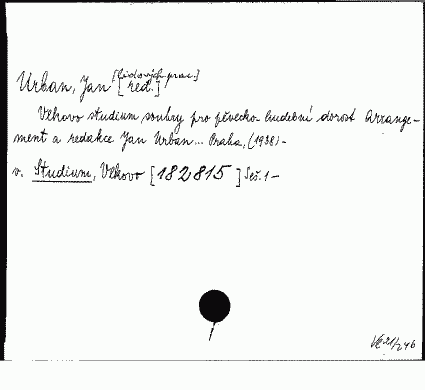 Urban, Jan [lidových prac.]
[red.]
Velkovo studium souhry pro pěvecko-hudební dorost Arrange-
ment a redakce Jan Urban... Praha, (1938)-
v. Studium, Velkovo [182815] Seš. 1-